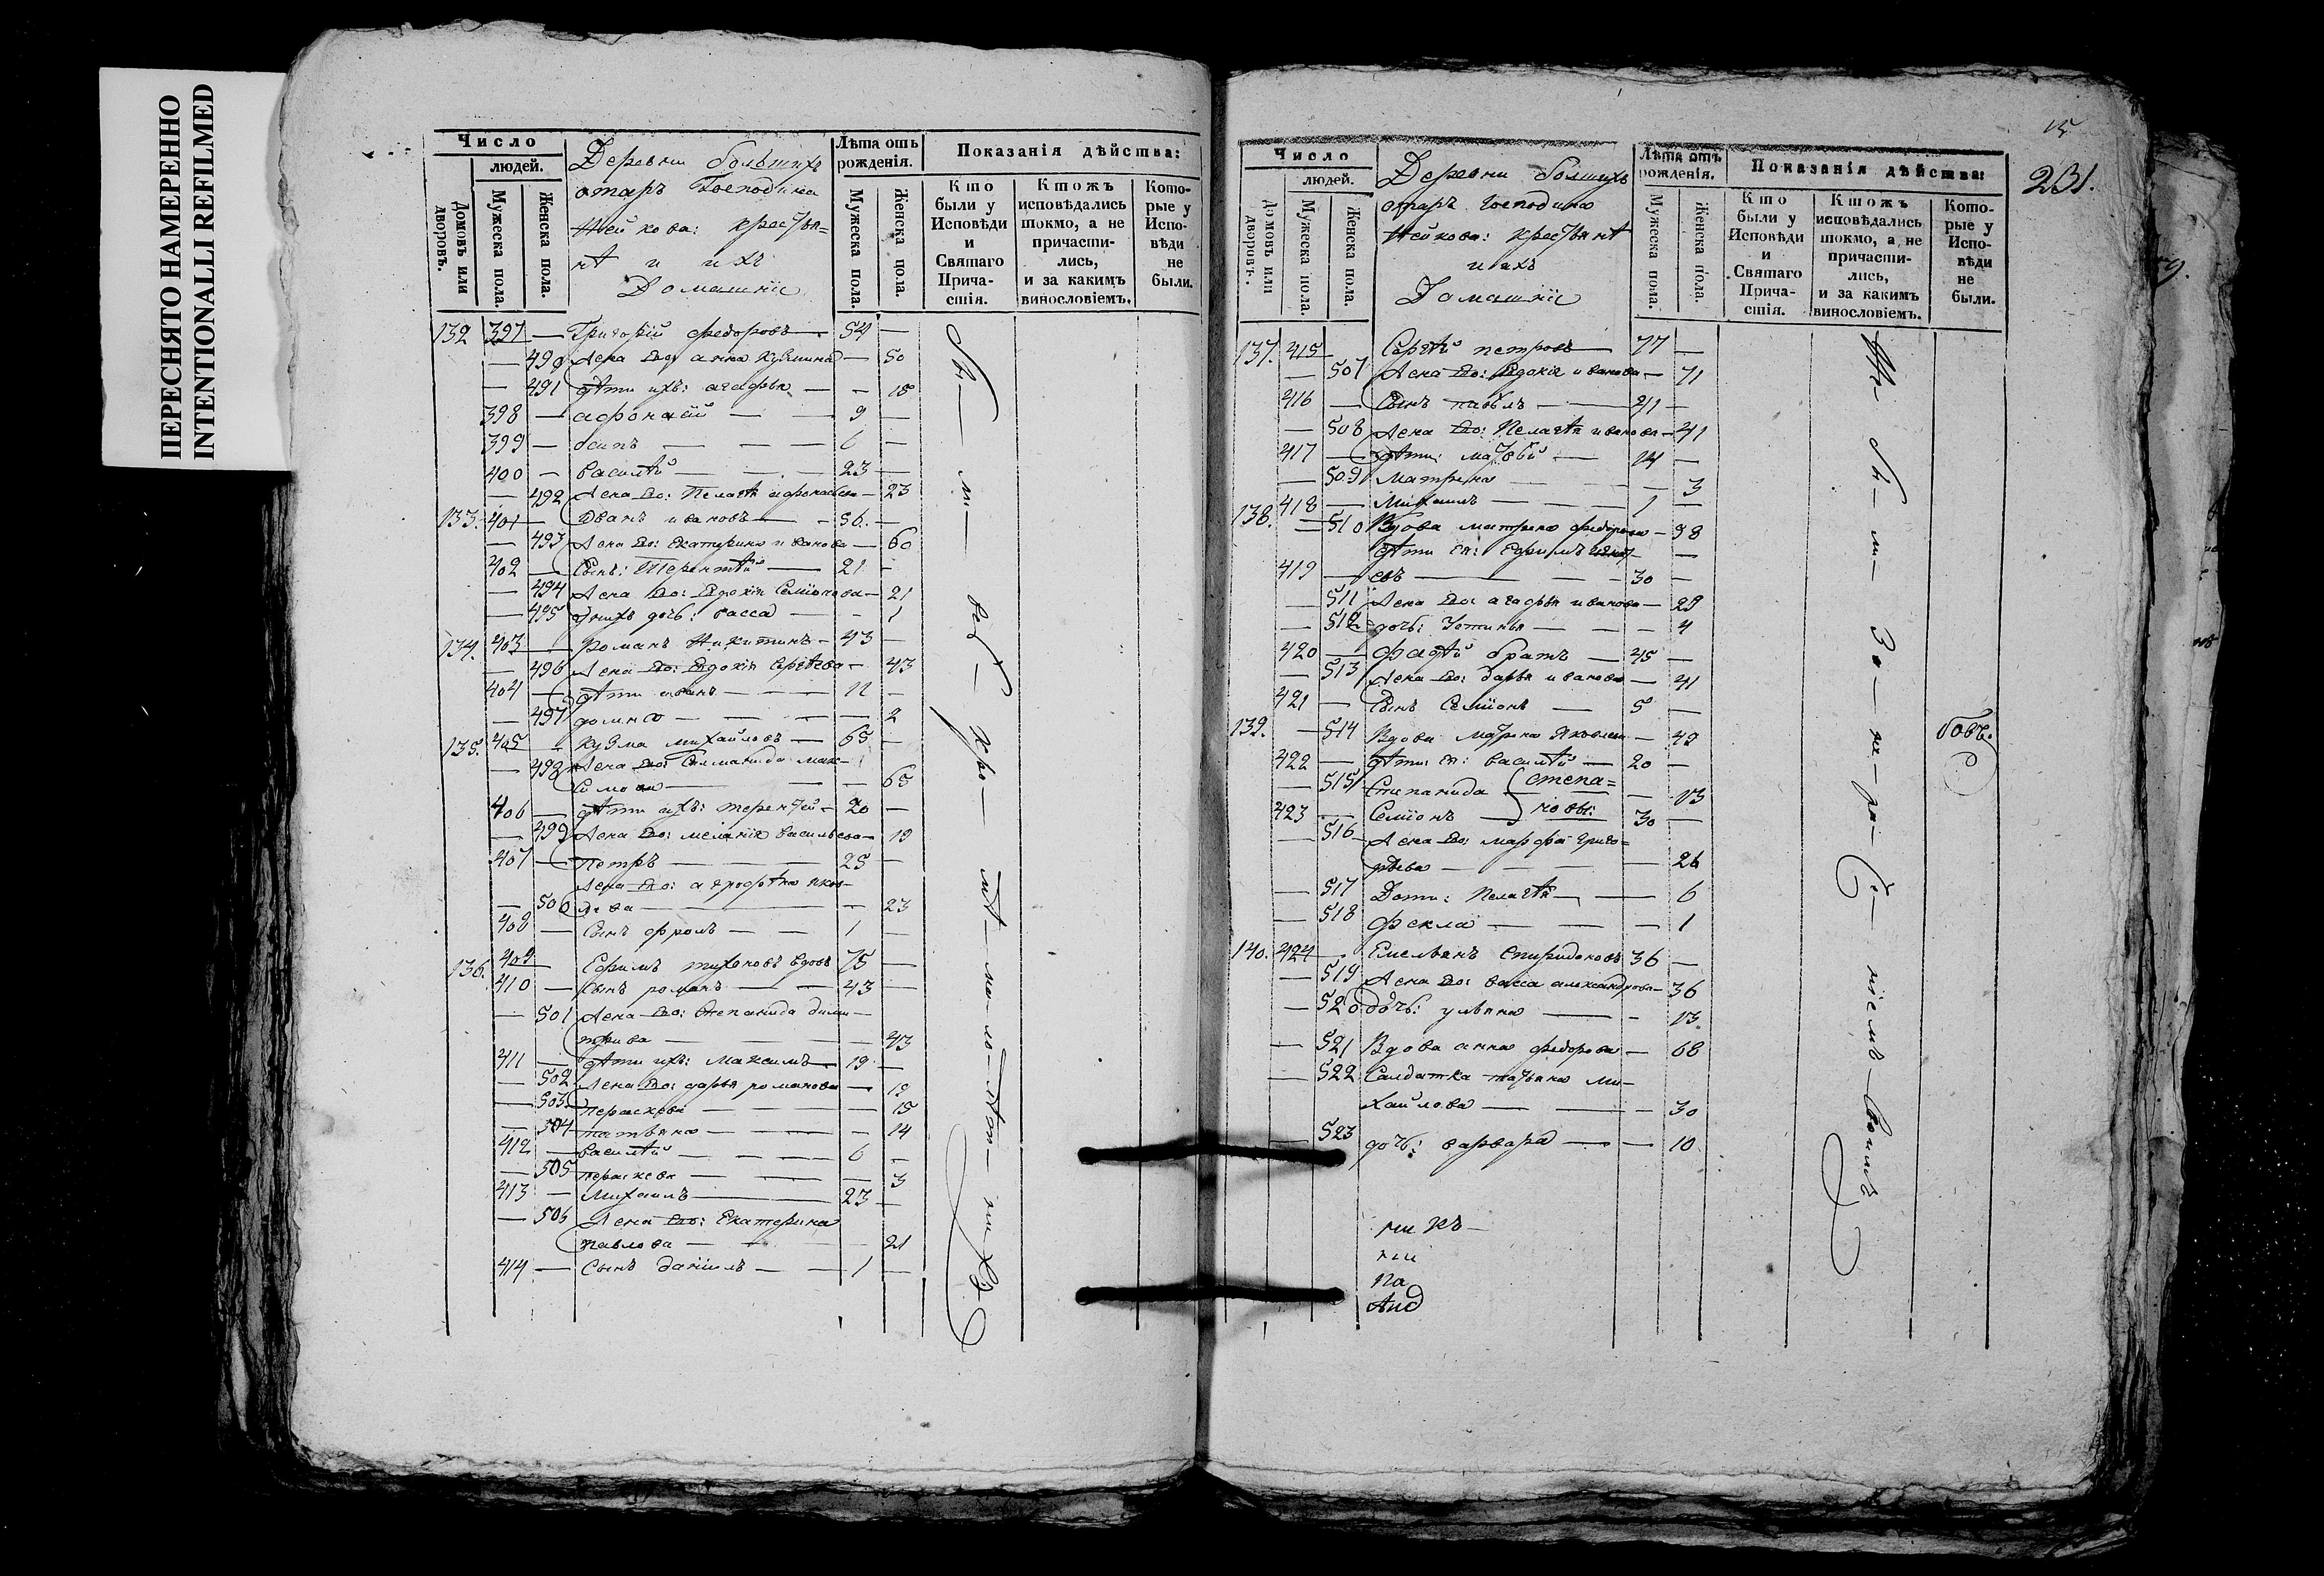 ПЕРЕСНЯТО НАМЕРЕННО
INTENTIONALLI REFILMED
Число
людей.
Домовъ или дворовъ.
Мужеска пола.
Женска пола.
Деревни большихъ
отаръ Господина
Нейкова: крестья=
нѣ и ихъ
Домашніи
Лѣта отъ рожденія.
Мужеска пола.
Женска пола.
Показанія дѣйства:
Кто были у Исповѣди и Святаго Прича-стія.
Ктожъ исповѣдались токмо, а не причасти-лись, и за какимъ винословіемъ.
Кото-рые у Испо-вѣди не были.
132 397 — Григорій федоровъ — 54 —
— 490 Жена его анна кузмина — 50
— 491 дѣти ихъ: агафья — — 18
398 — афонасій — — 9 —
399 — осипъ — — — 6 —
400 — василѣй — — 23 —
— 492 Жена его: Пелагѣя афонасьева — 23
133. 401 — Иванъ ивановъ — 56. —
— 493 Жена его: екатерина иванова — 60
402 — Сынъ: Терентѣй — 21 —
— 494 Жена его: Евдокія Семіонова — 21
— 495 у нихъ дочь: васса — — 1
134. 403 — романъ Никитинъ — 43 —
— 496 Жена его: Евдокія Сергѣева — 43
404 — дѣти иванъ — — 11 —
— 497 домна — — — — 2
135. 405 — кузма михайловъ — 65 —
— 498 Жена его: Саламанида мак-
симова — — — 65
406 — дѣти ихъ: терентей — 20 —
— 499 Жена его: меланія васильева — 19
407 — петръ — — — 25 —
Жена его: агрофѣна яков-
— 500 лева — — — 23
408 — Сынъ фролъ — — 1 —
136. 409 — Ефимъ тихоновъ вдовъ 75 —
410 — Сынъ романъ — — 43 —
— 501 Жена его: Степанида дими-
трива — — — 43
411 — дѣти ихъ: Максимъ — 19 —
— 502 Жена его: дарья романова — 19
— 503 параскева — — — 15
— 504 татьяна — — — 14
412 — василѣй — — — 6 —
— 505 параскева — — — 3
413 — Михаилъ — 23 —
— 506 Жена его: Екатерина
павлова — — — 21
414 — Сынъ даніилъ — — 1 —
231.
Число
людей.
Домовъ или дворовъ.
Мужеска пола
Женска пола.
Деревни болшихъ
отаръ господина
Нейкова: крестьянѣ
и ихъ
Домашніи
Лѣта отъ рожденія.
Мужеска пола.
Женска пола.
Показанія дѣйства:
Кто были у Исповѣди и Святаго Прича-стія.
Ктожъ исповѣдались токмо, а не причасти-лись, и за какимъ винословіемъ.
Кото-рые у Испо-вѣди не были.
137. 415 Сергѣй петровъ — 77 —
— 507 Жена его: Евдокія иванова — 71
416 — Сынъ павелъ — 41 —
— 508 Жена его: Пелагѣя иванова — 41
417 — дѣти: матвѣй — 14 —
— 509 Матрена — — — 3
418 — Михаилъ — — 1 —
138. — 510 Вдова матрена федорова — 98
дѣти ея: Ефимъ
419 — евъ — — 30 —
— 511 Жена его агафья иванова — 29
— 512 дочь: Устинья — — — 4
420 — фадѣй братъ — 45 —
— 513 Жена его: дарья иванова — 41
421 — Сынъ Семіонъ — 5 —
139. — 514 Вдова матрена Яковлева — 49
422 — дѣти ея: василѣй — 20 —
— 515 Степанида степа= — 13
423 — Семіонъ — новы: 30 —
— 516 Жена его: марфа григо-
рьева — — — 26
— 517 Доти: Пелагѣя — — 6
— 518 фекла — — — 1
140. 424 — Емельянъ спиридоновъ 36 —
— 519 Жена его: васса александрова — 36
— 520 дочь: ульяна — — 13.
— 521 Вдова анна федорова — 68
— 522 Салдатка татьяна ми-
хайлова — — — 30
— 523 дочь: варвара — — 10